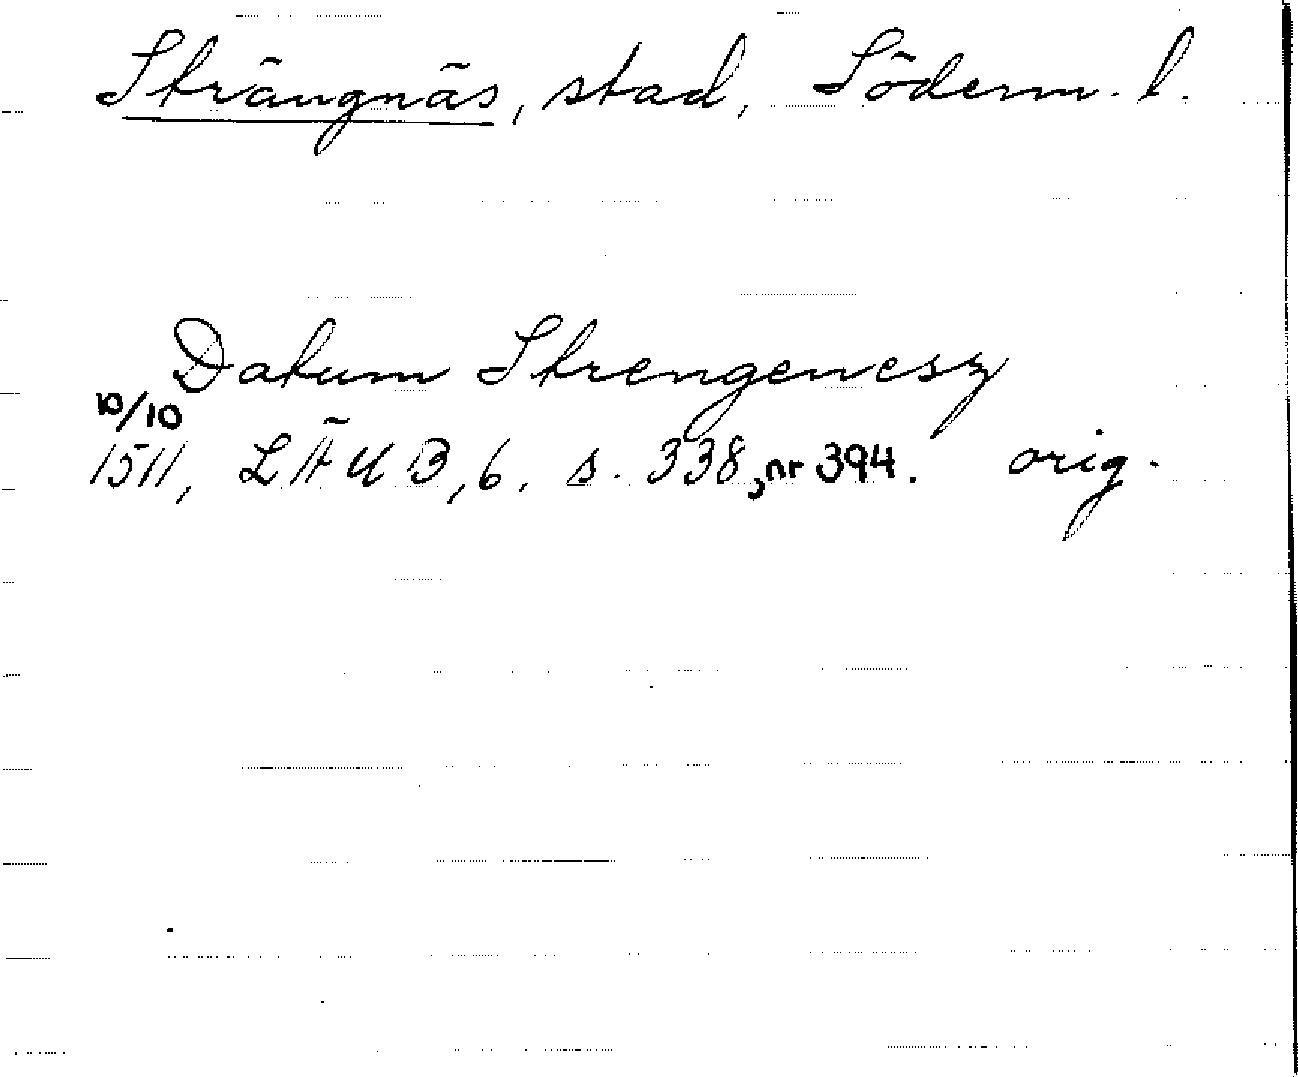 Strängnäs, stad, Söderm. l.
Datum Strengenesz
10/10
1511, LÄUB, 6, s. 338, nr 394. orig.